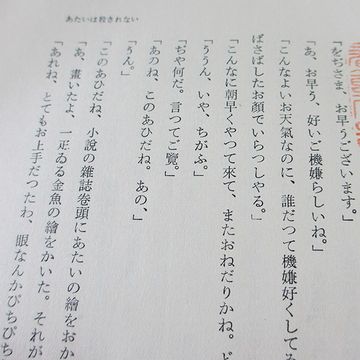 あたいは殺されない
「をぢさま、お早うございます。」
「あ、お早う、好いご機嫌らしいね。」
「こんなよいお天氣なのに、誰だつて機嫌好くして
ばさばしたお顔でいらつしやる。」
「こんなに朝早くやつて來て、またおねだりかね。ど
「ううん、いや、ちがふ。」
「ぢや何だ。言つてご覽。」
「あのね、このあひだね。あの、」
「うん。」
「このあひだね、小説の雜誌卷頭にあたいの繪をおか
「あ、畫いたよ、一疋ゐる金魚の繪をかいた。それが
「あれね、とてもお上手だつたわ、眼なんかぴちぴち